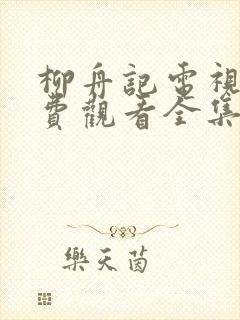 柳舟記電視
費觀看全集
樂天茵